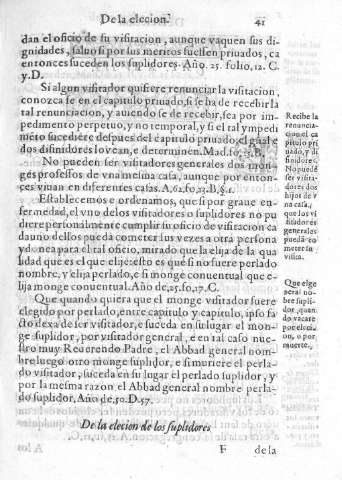 De la elecion.
41
dan el oficio de su visitacion, aunque vaquen sus di-
gnidades, saluo si por sus meritos fuessen priuados, ca
entonces suceden los suplidores. Año. 25. folio, 12. C.
y. D.
Si algun visitador quisiere renunciar la visitacion,
conozca se en el capitulo priuado, si se ha de recebir la
tal renunciacion, y auiendo se de recebir, sea por im-
pedimento perpetuo, y no temporal, y si el tal ympedi
mẽto sucediere despues del capitulo priuado, el gñal e
dos disinidores lo vean, e determinen. Mad. 10.
No pueden ser visitadores generales dos mon-
ges professos de vna mesma casa, aunque por enton-
ces viuan en diferentes casas. A, 62. fo, 22. D, §. 1.
Establecemos e ordenamos, que si por graue en-
fermedad, el vno delos visitadores o suplidores no pu
diere personalmente cumplir su oficio de visitacion ca
da uno dellos pueda cometer sus vezes a otra persona
ydonea para el tal oficio, mirado que la elija de la qua
lidad que es el que elije: esto es que si no fuere perlado
nombre, y elija perlado, e si monge conuentual que e-
lija monge conuentual. Año de, 25. fo, 17. C.
Que quando quiera que el monge visitador fuere
elegido por perlado, entre capitulo y capitulo, ipso fa
cto dexa de ser visitador, e suceda en su lugar el mon-
ge suplidor, por visitador general, e en tal caso nue-
stro muy Reuerendo Padre, el Abbad general nom-
bre luego otro monge suplidor, e si muriere el perla-
do visitador, suceda en su lugar el perlado suplidor, y
por la mesma razon el Abbad general nombre perla-
do suplidor, Año de, 50. D. 57.
De la elecion de los suplidores
F
de la
Recibe la
renuncia-
cion el ca
pitulo pri
uado, y di
finidores.
No pued
ser visita-
dores dos
hijos de
na casa,
que los vi
sitadores
generales
pueda co
meter su
visita.
Que elge
neral no-
bre supli-
dor, quan
do vacare
por elecio
on, o por
muerte,